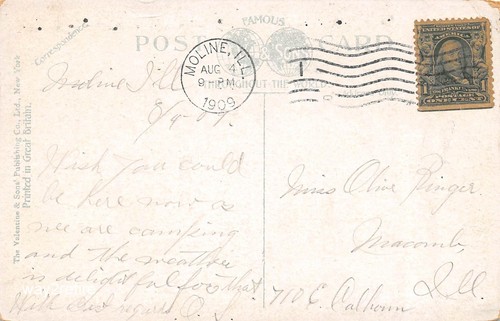 FAMOUS
POST CARD
THROUGHOUT THE WORLD
Correspondence.
The Valentine & Sons' Publishing Co., Ltd., New York
Printed in Great Britain.
MOLINE, ILL.
AUG 4
9 - PM
1909
1
Moline Ill
8/4-09.
Wish you could
be here now as
we are camping
and the weather
is delightful for that
With best regards O.
Miss Olive Ringer
Macomb
Ill.
710 E. Calhoun